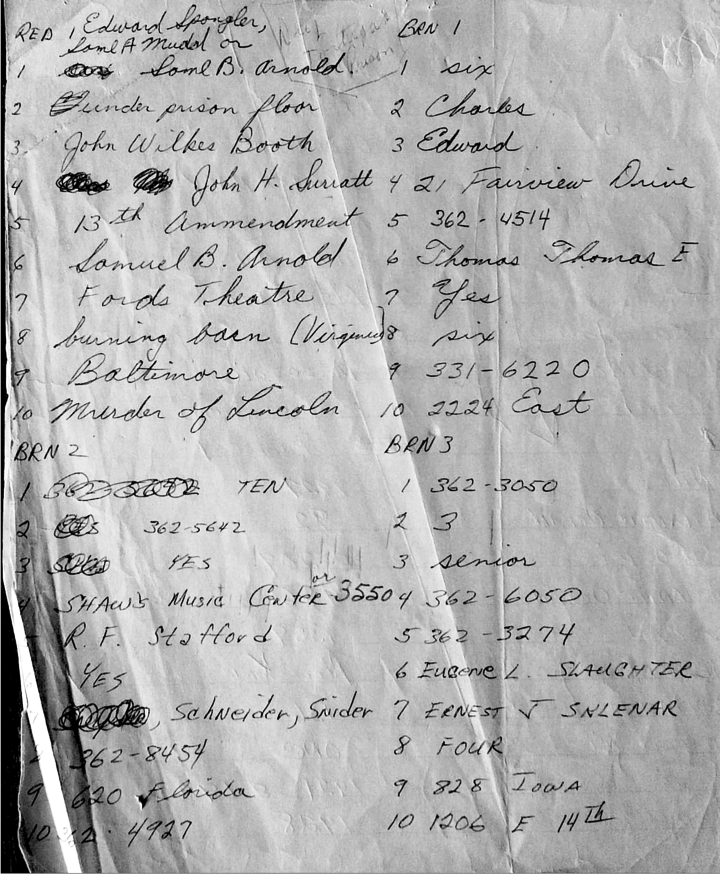 RED 1 Edward Spangler,
Saml A Mudd or
1 Saml B. Arnold
2 under prison floor
3. John Wilkes Booth
4 John H. Surratt
5 13th Ammendment
6 Samuel B. Arnold
7 Fords Theatre
8 burning barn (Virginia)
9 Baltimore
10 Murder of Lincoln
BRN 1
1 six
2 Charles
3 Edward
4 21 Fairview Drive
5 362-4514
6 Thomas Thomas E
7 Yes
8 six
9 331-6220
10 2224 East
BRN 2
1 TEN
2 362-5642
3 YES
4 SHAW'S Music Center or 3550
R. F. Stafford
YES
, Schneider, Snider
362-8454
9 620 Florida
10 362-4927
BRN 3
1 362-3050
2 3
3 senior
4 362-6050
5 362-3274
6 EUGENE L. SLAUGHTER
7 ERNEST J SKLENAR
8 FOUR
9 828 IOWA
10 1206 E 14TH